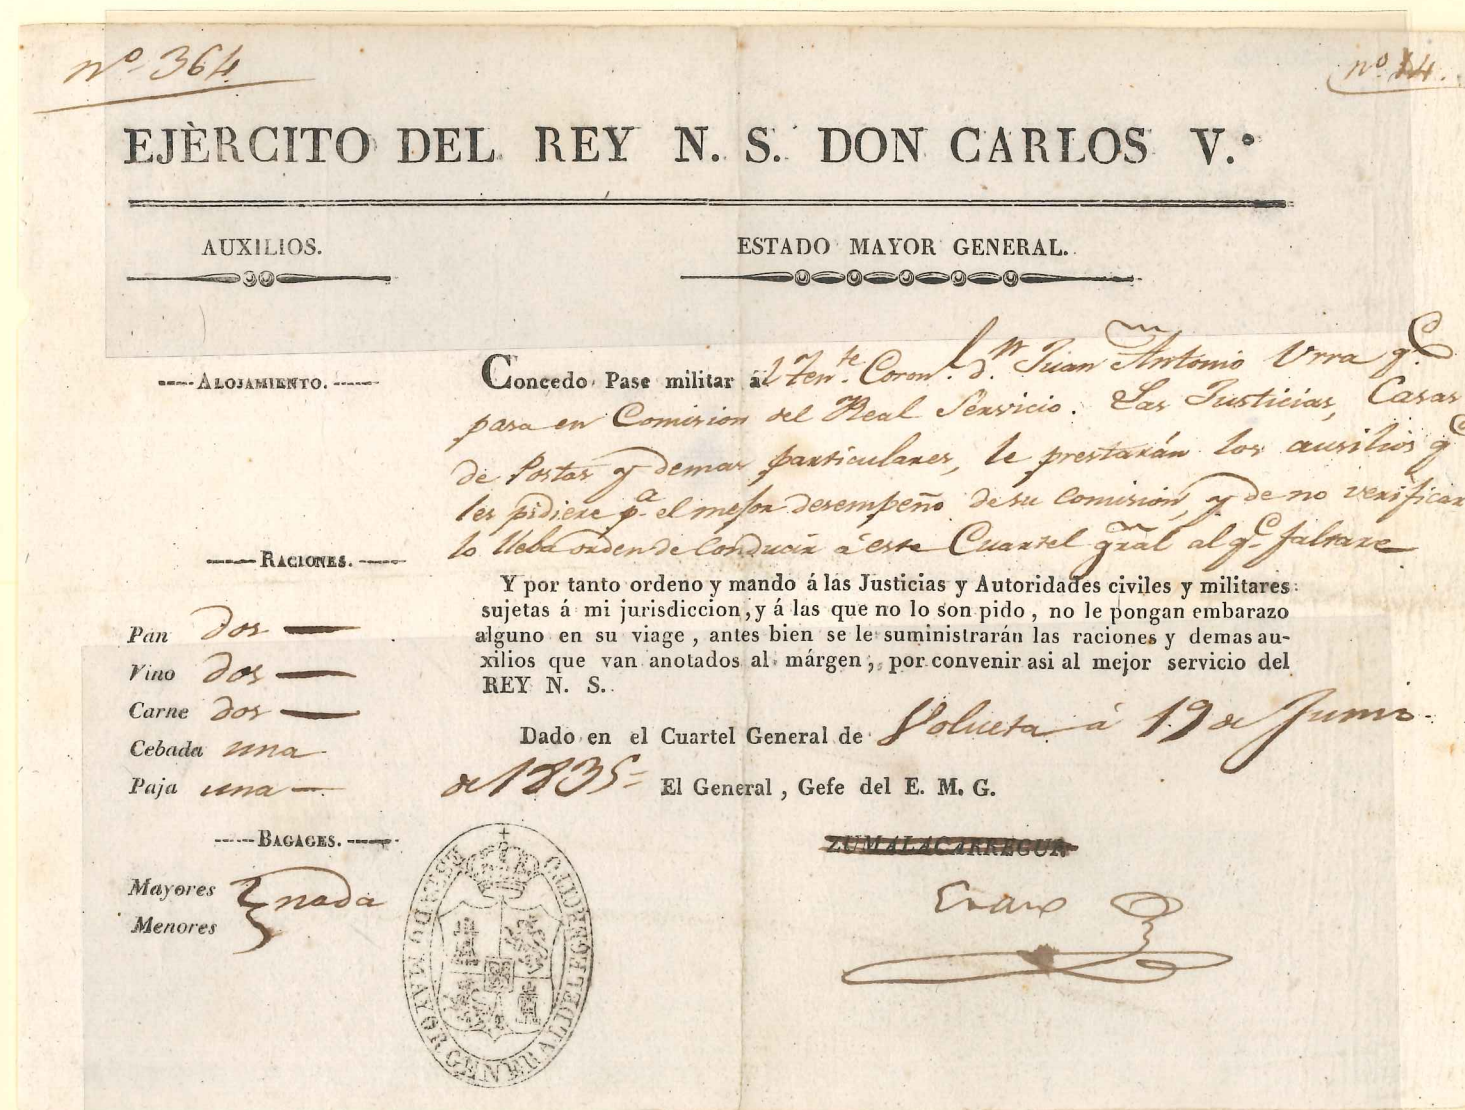 nº 364
nº 14.
EJÈRCITO DEL REY N. S. DON CARLOS V.º
AUXILIOS.
ESTADO MAYOR GENERAL.
ALOJAMIENTO.
Concedo Pase militar ál Tente. Coronl. dn. Juan Antonio Urra qe.
pasa en Comision del Real Servicio. Las Justicias, Casas
de Postas y demas particulares, le prestarán los ausilios qe
les pidiere pa. el mejor desempeño de su Comisión, y de no verificar
lo lleba orden de conducir á este Cuartel gral al qe. faltare
RACIONES.
Y por tanto ordeno y mando á las Justicias y Autoridades civiles y militares
sujetas á mi jurisdiccion, y á las que no lo son pido, no le pongan embarazo
alguno en su viage, antes bien se le suministrarán las raciones y demas au-
xilios que van anotados al márgen, por convenir asi al mejor servicio del
REY N. S.
Pan dos
Vino dos
Carne dos
Cebada una
Paja una
Dado en el Cuartel General de Bolueta á 19 de Junio
de 1835 El General, Gefe del E. M. G.
BAGAGES.
ZUMALACARREGUI
Mayores
Menores
nada
Eraso
ESTADO MAYOR GENERAL DEL EGERCITO